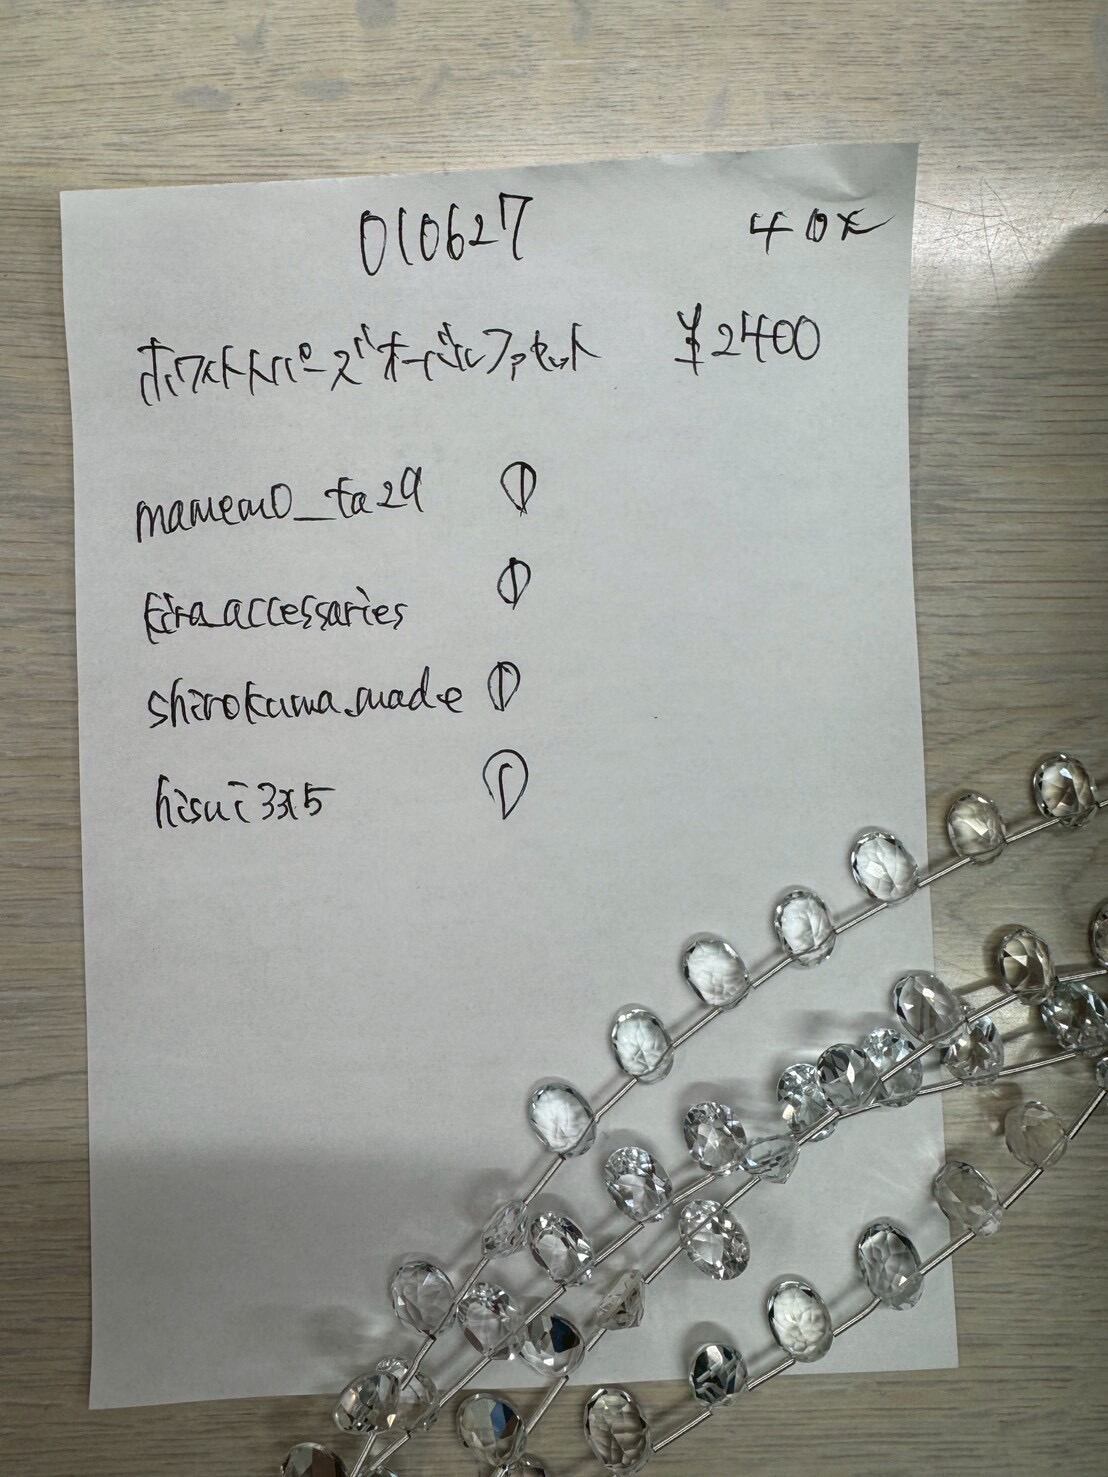 010627 40×
ホワイトトパーズオーバルファセット ¥2400
mamemo_ta29 ①
kira_accessaries ①
shirokuma.made ①
hisui3x5 ①